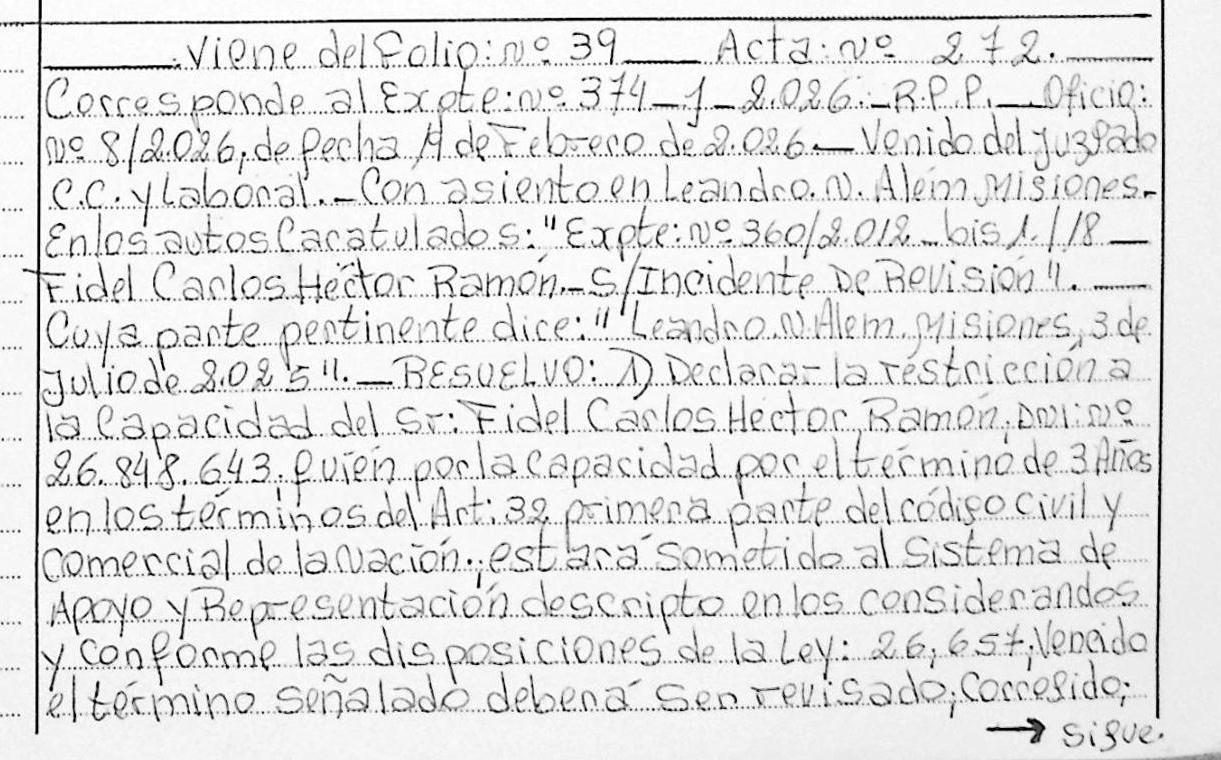 ______. Viene del Folio: nº 39 ____ Acta: nº 272. ____
Corresponde al Expte: nº. 374-J-2.026.-R.P.P. __ Oficio:
nº 8/2.026, de fecha 19 de Febrero de 2.026.__ Venido del Juzgado
C.C. y Laboral._ Con asiento en Leandro. N. Alem Misiones-
En los autos Caratulados: "Expte: nº 360/2.012_bis 1./18 __
Fidel Carlos Hector Ramón._S/Incidente De Revisión". ___
Cuya parte pertinente dice: "Leandro. N. Alem. Misiones, 3 de
Julio de 2.025". __ RESUELVO: 1) Declarar la restricción a
la Capacidad del Sr: Fidel Carlos Hector, Ramón, DNI: nº
26.848.643. Quien por la capacidad por el término de 3 Años
en los términos del Art: 32 primera parte del código Civil y
Comercial de la Nación.; estará sometido al Sistema de
Apoyo y Representación descripto en los considerandos
y conforme las disposiciones de la Ley: 26,657; Vencido
el término señalado deberá ser revisado; Corregido;
→ Sigue.